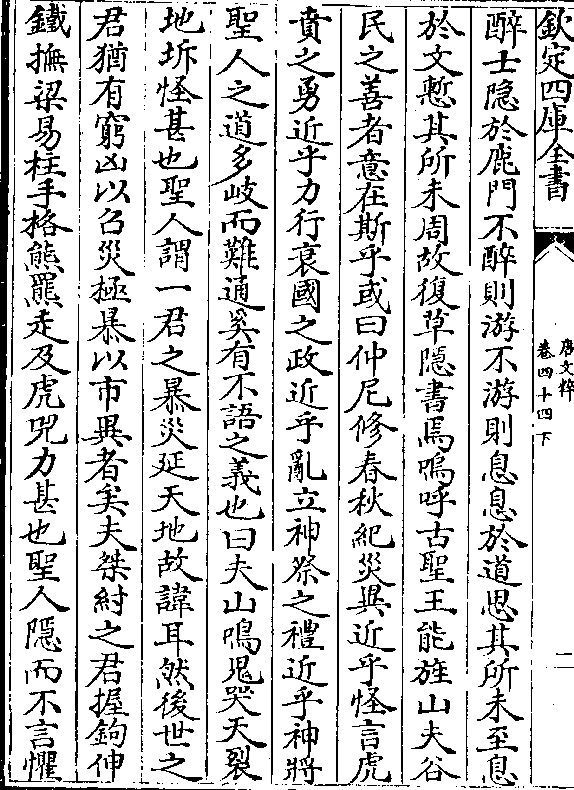 欽定四庫全書
唐文粹
卷四十四下
二
醉士隱於鹿門不醉則游不游則息息於道思其所未至息
於文慙其所未周故復草隱書焉嗚呼古聖王能旌山夫谷
民之善者意在斯乎或曰仲尼修春秋紀災異近乎怪言虎
賁之勇近乎力行衰國之政近乎亂立神祭之禮近乎神將
聖人之道多岐而難通奚有不語之義也曰夫山鳴鬼哭天裂
地坼怪甚也聖人謂一君之暴災延天地故諱耳然後世之
君猶有窮凶以召災極暴以市異者矣夫桀紂之君握鉤伸
鐵撫梁易柱手格熊羆走及虎兕力甚也聖人隱而不言懼